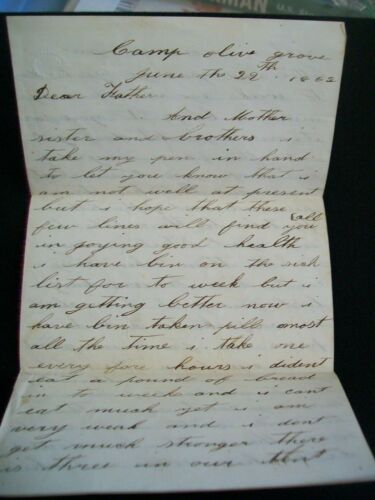 MAN U.S.
Camp olive grove
June th 29th 1862
Dear Father
And Mother
sister and brothers is
take my pen in hand
to let you know that is
am not well at present
but is hope that these
few lines will find you all
in joying good health
is have bin on the sick
list for to week but is
am getting better now is
have bin taken pill amost
all the time is take one
every fore hours is dident
eat a pound of bread
in to week and is cant
eat much yet is am
very weak and is dont
get much stronger there
is three in our tent